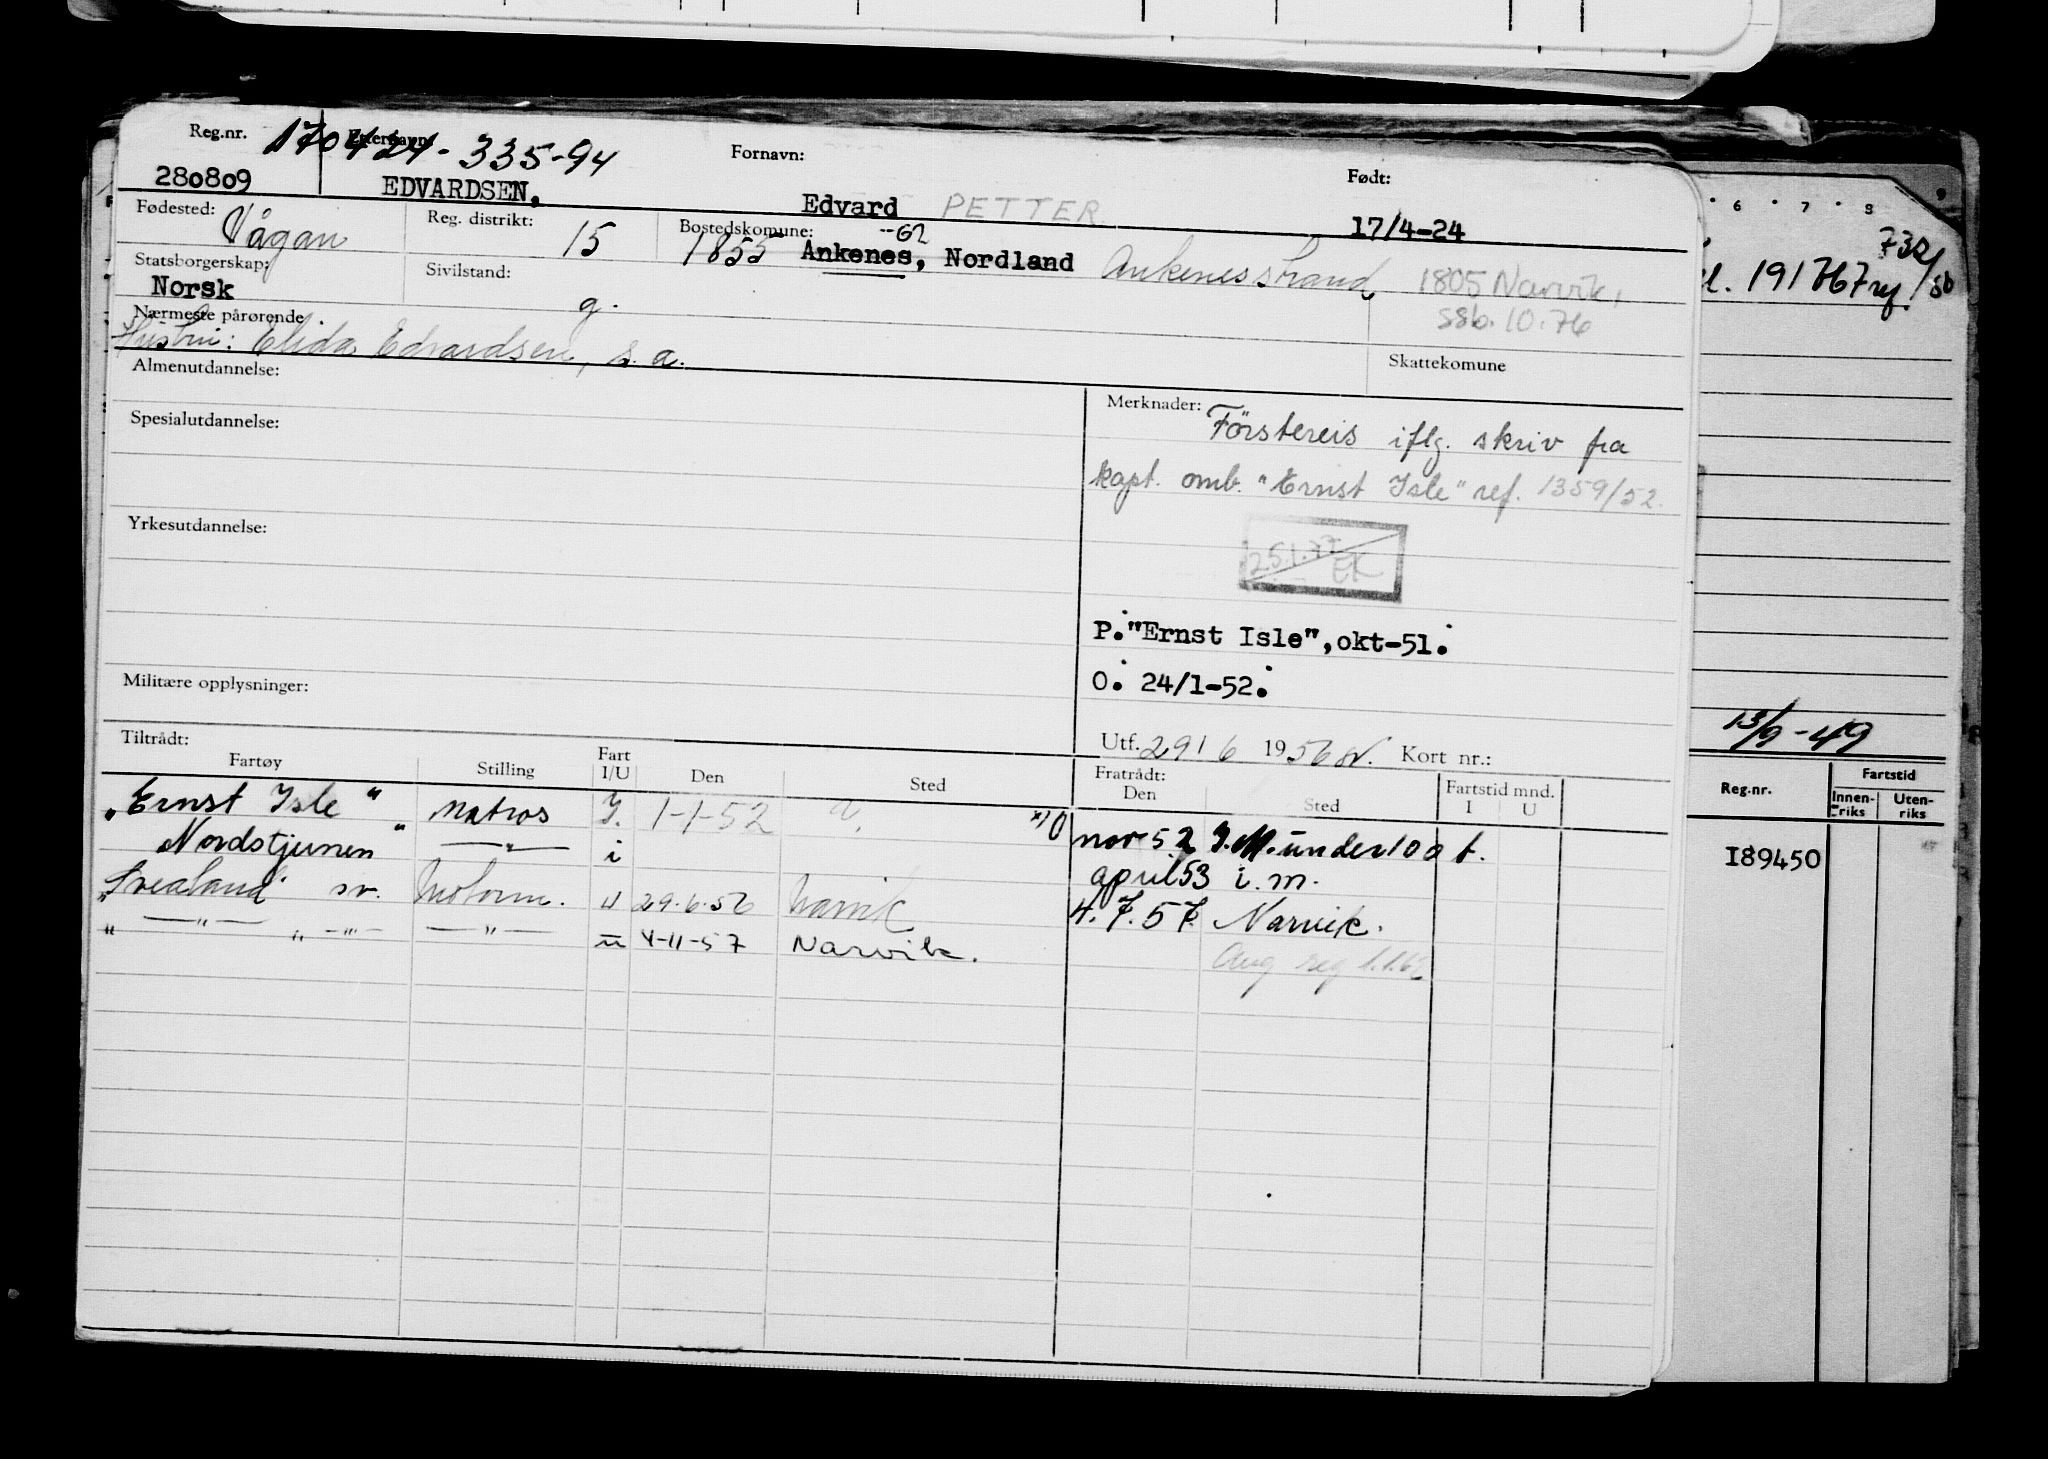 Reg.nr. Etternavn: 170424-335-94 Fornavn: Født:
280809 EDVARDSEN, Edvard PETTER 17/4-24
Fødested: Vågan Reg. distrikt: 15 Bostedskomune: -62 1855 Ankenes, Nordland Ankenesstrand 1805 Narvik,
ssb. 10.76
Statsborgerskap: Norsk Sivilstand: g.
Nærmeste pårørende
Hustru: Elida Edvardsen, s.a.
Skattekomune
Almenutdannelse:
Spesialutdannelse:
Yrkesutdannelse:
Militære opplysninger:
Merknader: Förstereis iflg. skriv fra
kapt. omb. "Ernst Isle" ref. 1359/52.
25.1.77 EK
P. "Ernst Isle", okt-51.
O. 24/1-52.
Utf. 29/6 1956 Kort nr.:
Tiltrådt: Fratrådt:
Fartøy Stilling Fart I/U Den Sted Den Sted Fartstid mnd. I U
"Ernst Isle" Matros I. 1-1-52 nov 52 I.M. under 100 t.
Nordstjernen" —"— i april 53 i.m.
"Svealand" sv. Motorm. u 29.6.56 Narvik 4.7.57 Narvik.
" —"— " —"— —"— u 4-11-57 Narvik. reg 1.1.62
6 7 8 9
732/
13/9-49
Reg.nr. Fartstid
Innenriks Utenriks
189450